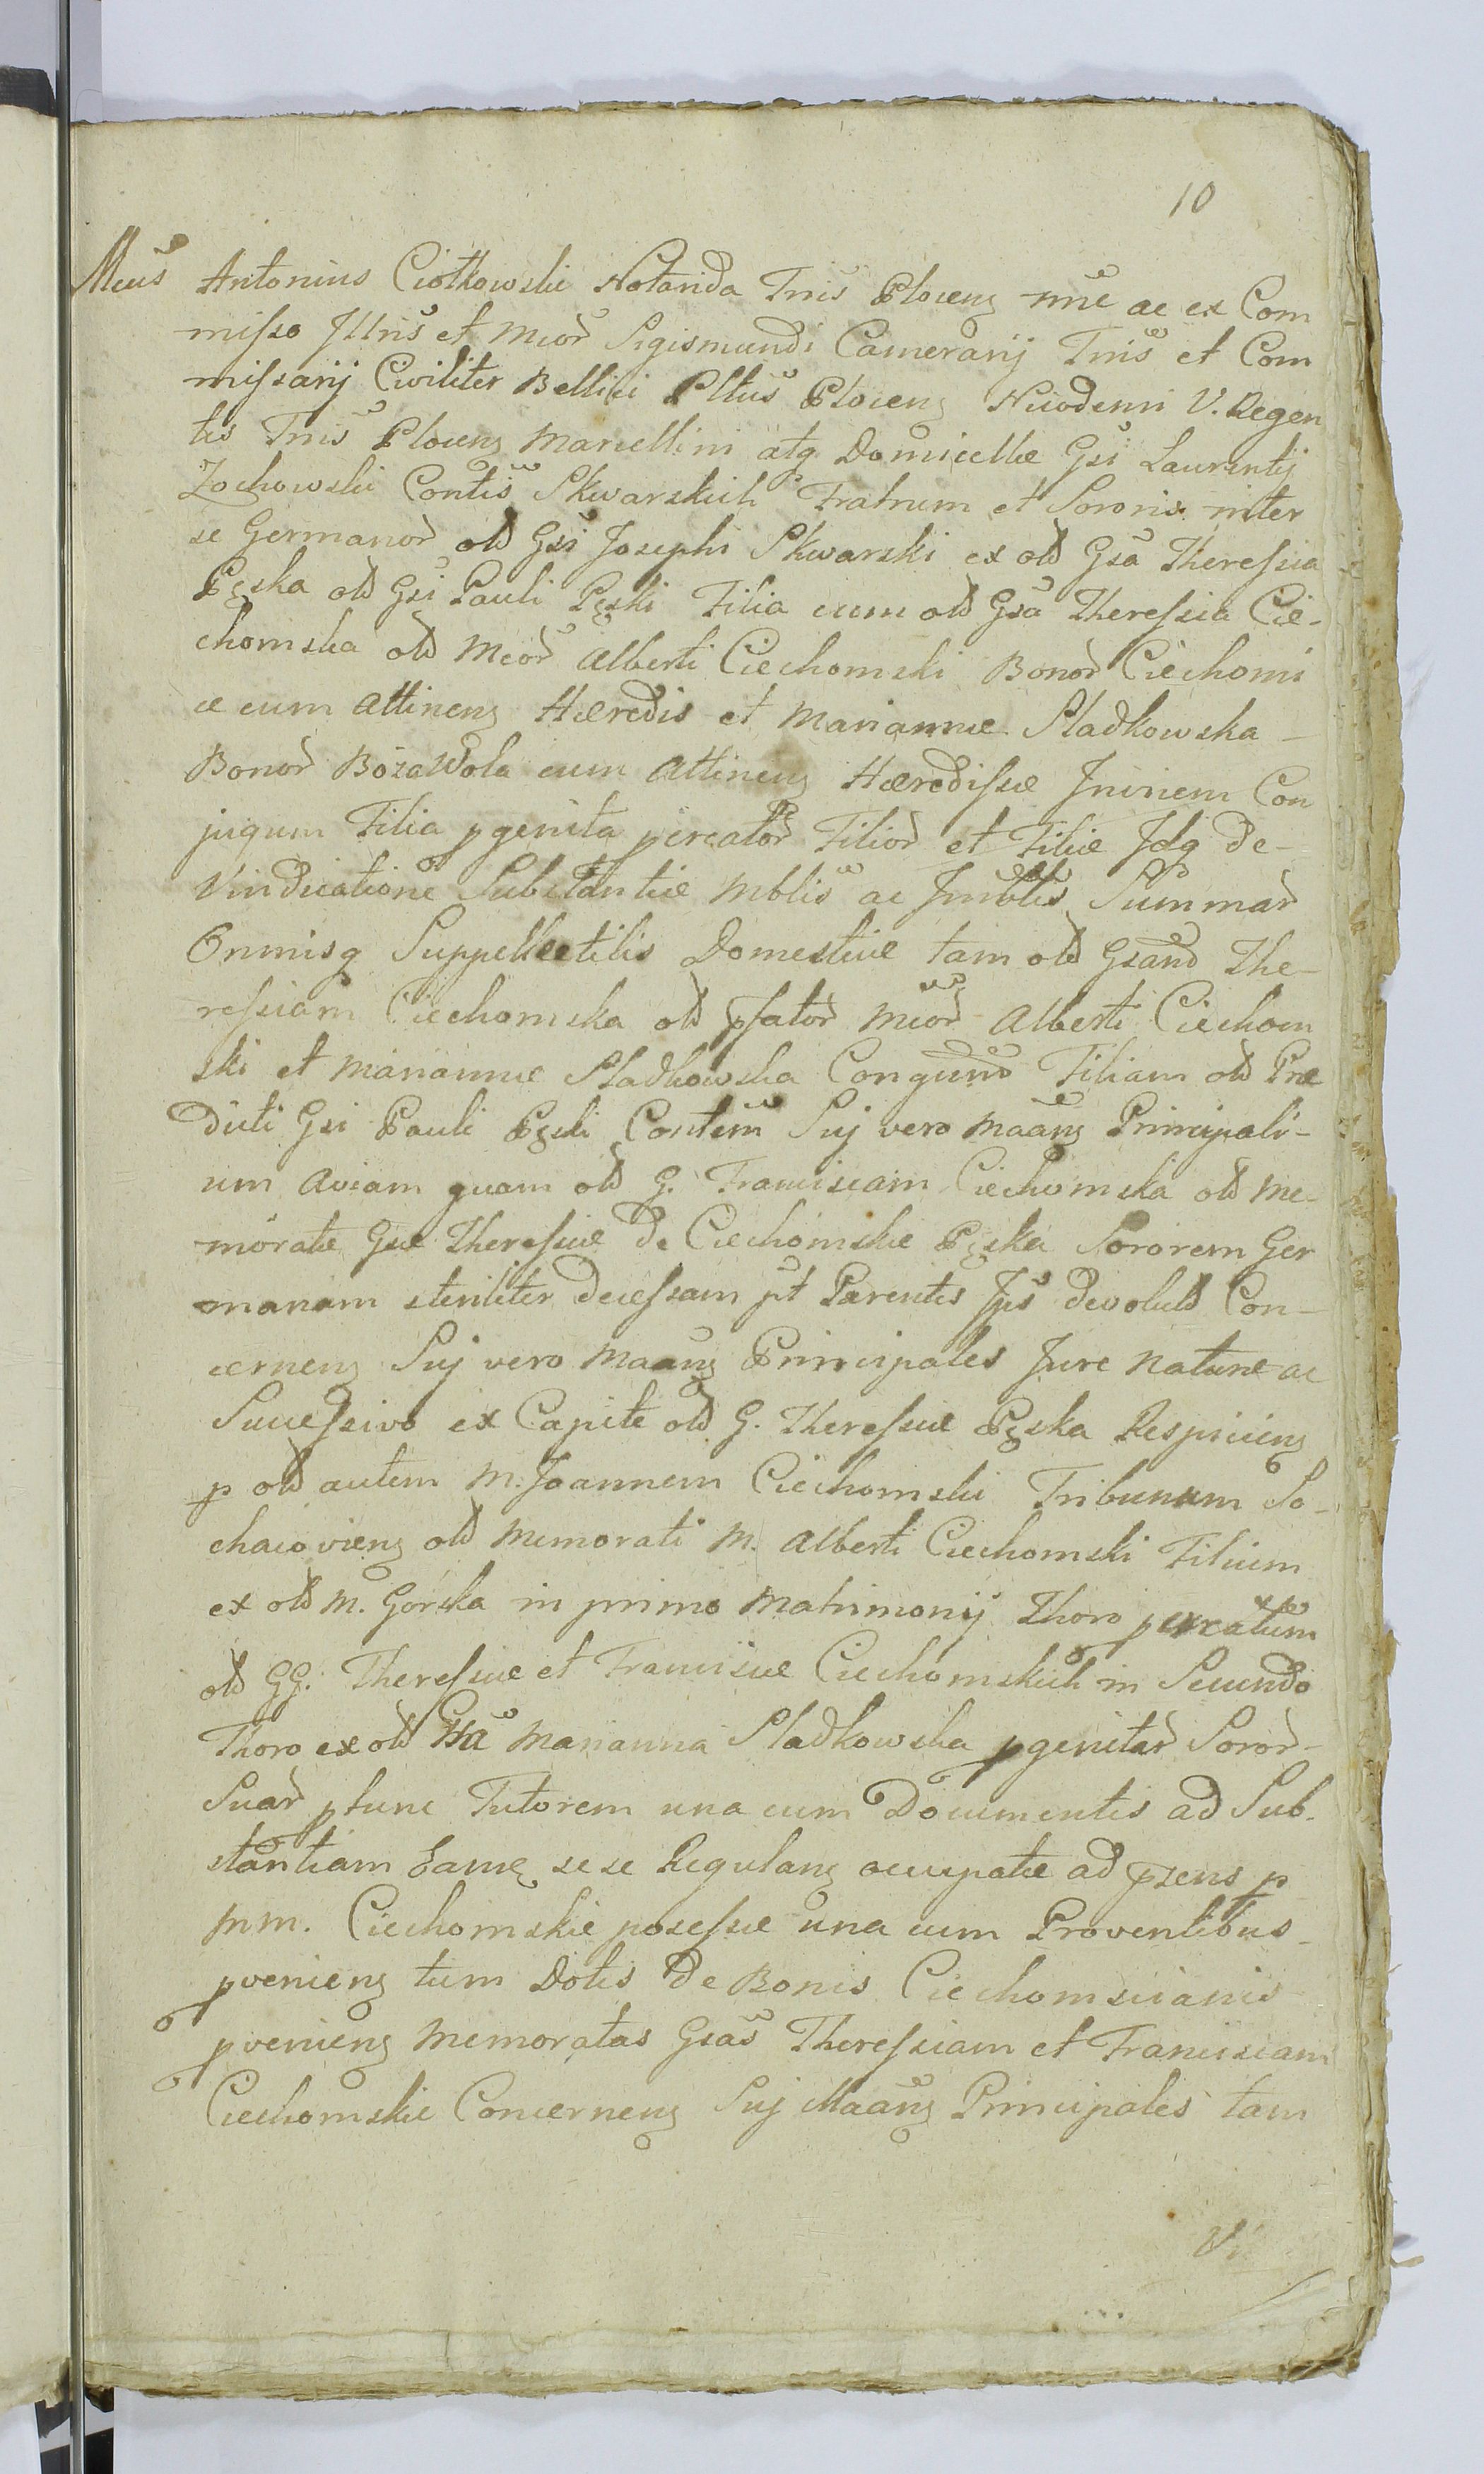 10
Mcus Antonius Ciółkowski Notarida Tris Plocens nne ac ex Com
misso Illris et Mcor Sigismundi Camerarij Tris et Com
missarij Civiliter Bellici Pltus Plocens Nicodemi V. Regen
tis Tris Plocens Marcellini atq Domicellæ Gsi Laurentij
Zochowski Contis Skwarskich Fratrum et Sororis inter
se Germanor old Gsi Josephi Skwarski ex old Gsa Theressia
Pęska old Gsi Pauli Pęski Filia cum old Gsa Theressia Cie-
chomska old Mcor Alberti Ciechomski Bonor Ciechomi
ce cum Attinens Hæredis et Mariannæ Sladkowska
Bonor Bożawola cum Attinens Hæredissæ Invicem Con
jugum Filia pgenita pcreator Filior et Filiæ Idq de-
Vindicatione Substantiæ Mblis ac Imblis Summar
Omnisq Suppellectilis Domesticæ tam old Gsand The-
ressiam Ciechomska old pfator Mcor Alberti Ciechom
ski et Mariannæ Sladkowska Conguno Filiam old Præ
dicti Gsi Pauli Pęski Contem Sui vero Maans Principali-
um Aviam quam old G. Franciscam Ciechomska old Me-
moratæ Gsæ Theressiæ de Ciechomskie Pęska Sororem Ger
manam steriliter decessam pt Parentes Jps devolutd Con-
cernens Suj vero Maans Principales Jure Naturæ ac
Successivo ex Capite old G. Theressiæ Pęska Respiciens
p old autem M. Joannem Ciechomski Tribunum So-
chacoviens old Memorati M. Alberti Ciechomski Filium
ex old M. Gorska in primo Matrimonij Thoro pcreatum
old GG. Theressiæ et Franciscæ Ciechomskich in Secundo
Thoro ex old Ma Marianna Sladkowska pgenitar Soror-
Suar ptunc Tutorem una cum Documentis ad Sub-
stantiam Eamq sese Regulans occupatæ ad psens p
MM. Ciechomskie posessæ una cum Proventibus
pveniens tum Dotis de Bonis Ciechomscianis
pveniens Memoratas Gsas Theressiam et Franciscam
Ciechomskie Concernens Suj Maans Principales tam